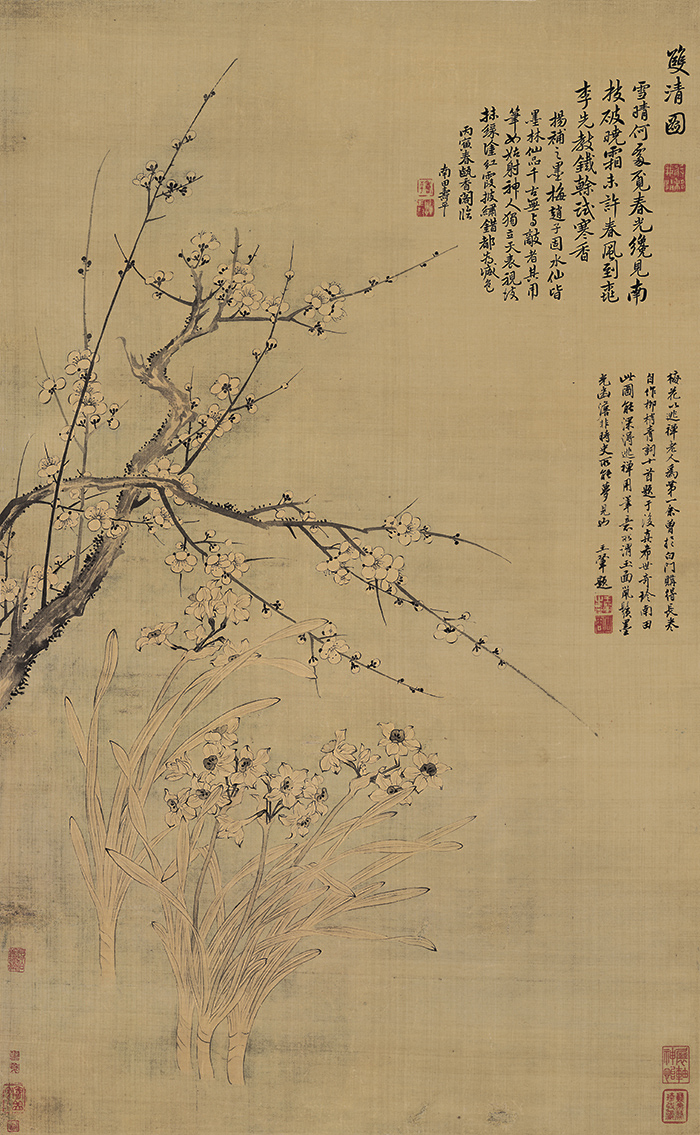 雙清圖
雪晴何處覓春光纔見南
枝破曉霜未許春風到桃
李先教鐵榦試寒香
揚補之墨梅趙子固水仙皆
墨林仙品千古無與敵者其用
筆如姑射神人獨立天表視彼
抹綠塗紅霞披繡錯都為減色
丙寅春甌香閣臨
南田壽平
梅花以逃禪老人為第一余曾於白門購得長卷
自作柳梢青詞十首題于後真希世奇珍南田
此圖能深得逃禪用筆意所謂玉面風鬟墨
光幽澹非時史所能夢見也 王翬題